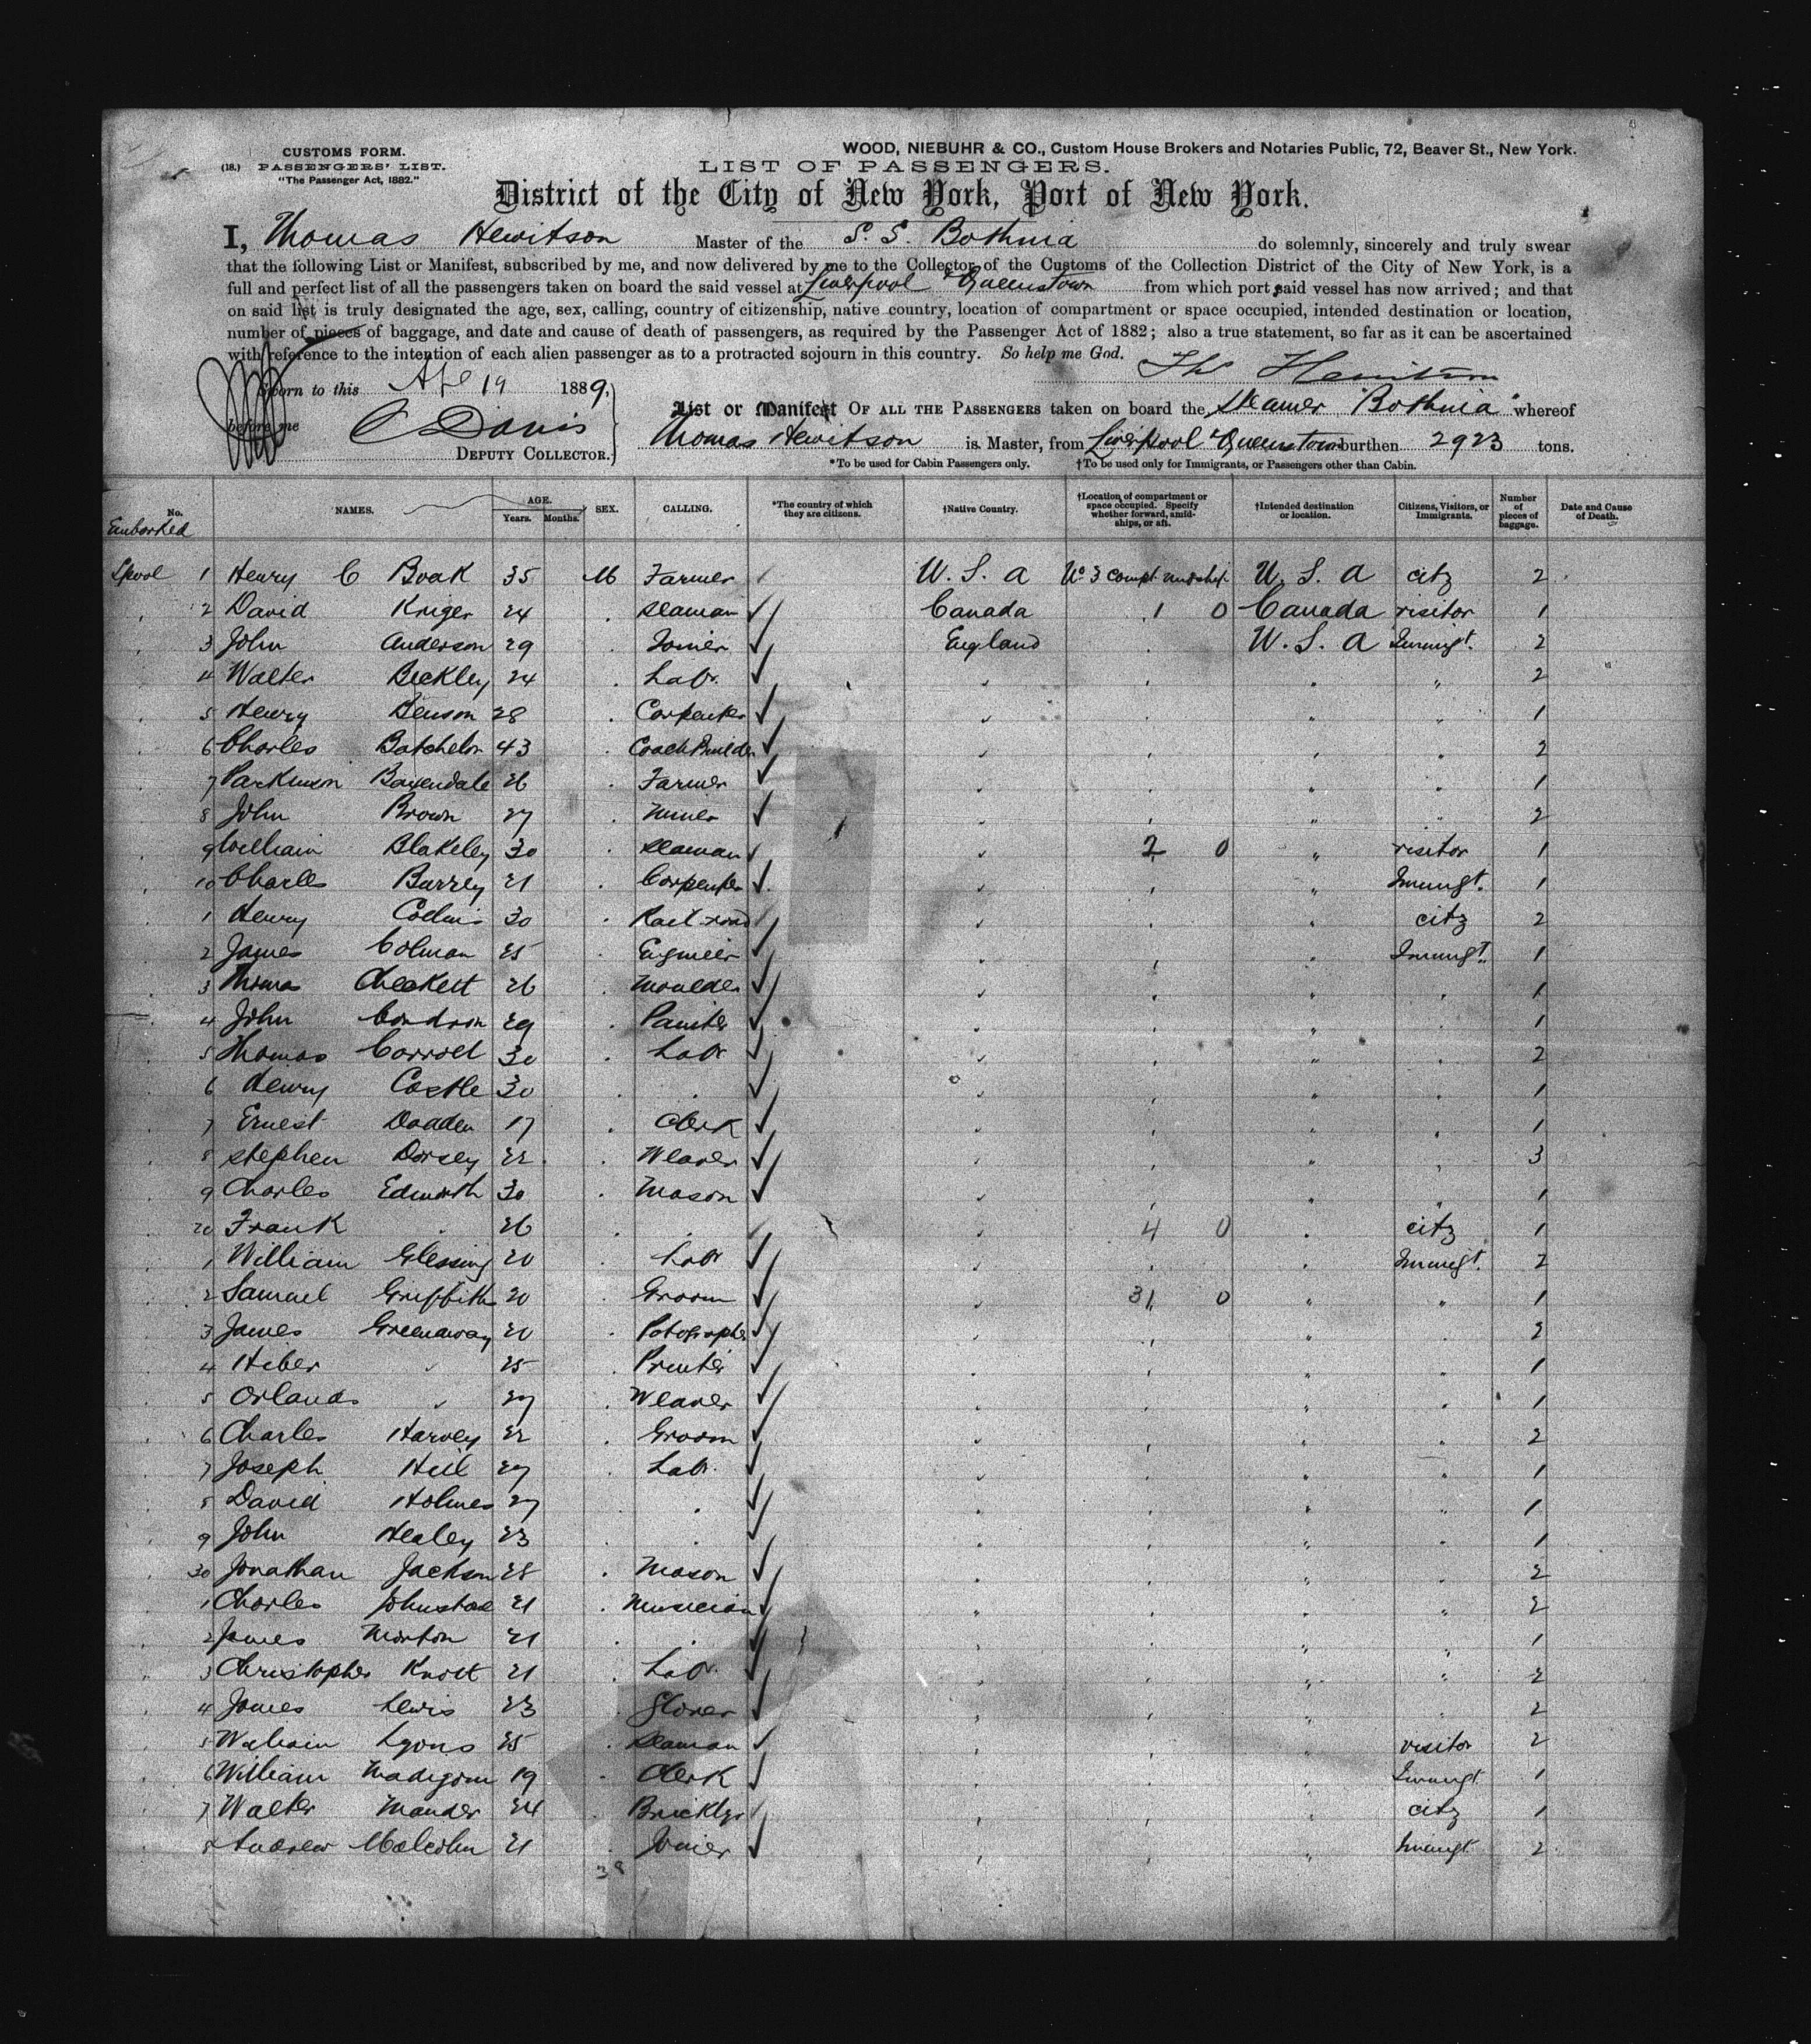 CUSTOMS FORM.
(18.) PASSENGERS' LIST.
"The Passenger Act, 1882."
WOOD, NIEBUHR & CO., Custom House Brokers and Notaries Public, 72, Beaver St., New York.
LIST OF PASSENGERS.
District of the City of New York, Port of New York.
I, Thomas Hewitson Master of the S. S. Bothnia do solemnly, sincerely and truly swear
that the following List or Manifest, subscribed by me, and now delivered by me to the Collector of the Customs of the Collection District of the City of New York, is a
full and perfect list of all the passengers taken on board the said vessel at Liverpool & Queenstown from which port said vessel has now arrived; and that
on said list is truly designated the age, sex, calling, country of citizenship, native country, location of compartment or space occupied, intended destination or location,
number of pieces of baggage, and date and cause of death of passengers, as required by the Passenger Act of 1882; also a true statement, so far as it can be ascertained
with reference to the intention of each alien passenger as to a protracted sojourn in this country. So help me God.
Thos Hewitson
Sworn to this Apl 19 1889,
before me C Davis
DEPUTY COLLECTOR.
List or Manifest OF ALL THE PASSENGERS taken on board the Steamer "Bothnia" whereof
Thomas Hewitson is Master, from Liverpool & Queenstown burthen 2923 tons.
*To be used for Cabin Passengers only. †To be used only for Immigrants, or Passengers other than Cabin.
No. NAMES. AGE. Years. Months. SEX. CALLING. *The country of which they are citizens. †Native Country. †Location of compartment or space occupied. Specify whether forward, amidships, or aft. †Intended destination or location. Citizens, Visitors, or Immigrants. Number of pieces of baggage. Date and Cause of Death.
Embarked
Lpool 1 Henry C Boak 35 M Farmer U. S. A No 3 Compt midship U. S. A citz 2
2 David Kriger 24 Seaman Canada 1 0 Canada visitor 1
3 John Anderson 29 Joiner England U. S. A Immigt. 2
4 Walter Beckley 24 Labr. " " 2
5 Henry Benson 28 Carpenter " " 1
6 Charles Batchelor 43 Coach Builder " " 2
7 Parkinson Baxendale 26 Farmer " " 1
8 John Brown 27 Miner " " 2
9 William Blakeley 30 Seaman 2 0 " visitor 1
10 Charles Burrey 21 Carpenter " Immigt. 1
1 Henry Collins 30 Rail-road " citz 2
2 James Colman 25 Engineer " Immigt. 1
3 Thomas Checkett 26 Moulder " " 1
4 John Condron 29 Painter " " 1
5 Thomas Carroll 30 Labr " " 2
6 Henry Castle 30 " " " 1
7 Ernest Doaden 17 Clerk " " 1
8 Stephen Dorsey 22 Weaver " " 3
9 Charles Edworth 30 Mason " " 1
20 Frank " 26 " 4 0 " citz 1
1 William Glessing 20 Labr " Immigt. 2
2 Samuel Griffiths 20 Groom 31 0 " " 1
3 James Greenaway 20 Potographer " " 2
4 Heber " 25 Printer " " 1
5 Orlando " 27 Weaver " " 1
6 Charles Harvey 22 Groom " " 2
7 Joseph Hill 27 Labr. " " 1
8 David Holmes 27 " " " 1
9 John Healey 23 " " " 1
30 Jonathan Jackson 28 Mason " " 2
1 Charles Johnstone 21 Musician " " 2
2 James Morton 21 " " " 1
3 Christopher Knott 21 Labr. " " 2
4 James Lewis 23 Glover " " 2
5 William Lyons 25 Seaman " visitor 2
6 William Madigan 19 Clerk " Immigt 1
7 Walter Mander 24 Bricklyr " citz 1
8 Andrew Malcolm 21 Joiner " Immigt 2
38